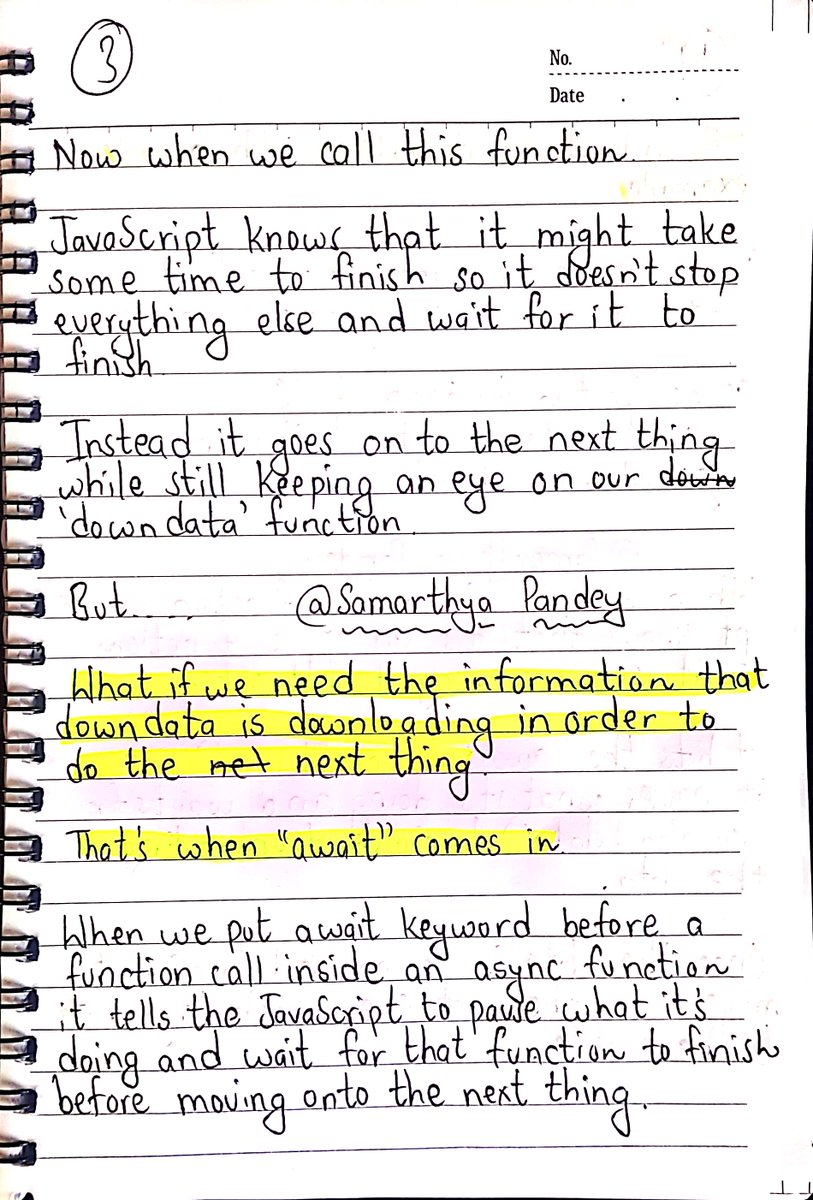 3
No.
Date . .
Now when we call this function.
JavaScript knows that it might take
some time to finish so it doesn't stop
everything else and wait for it to
finish
Instead it goes on to the next thing
while still keeping an eye on our down
'down data' function.
But...... @Samarthya Pandey
What if we need the information that
down data is downloading in order to
do the net next thing.
That's when "await" comes in.
When we put await keyword before a
function call inside an async function
it tells the JavaScript to pause what it's
doing and wait for that function to finish
before moving onto the next thing.